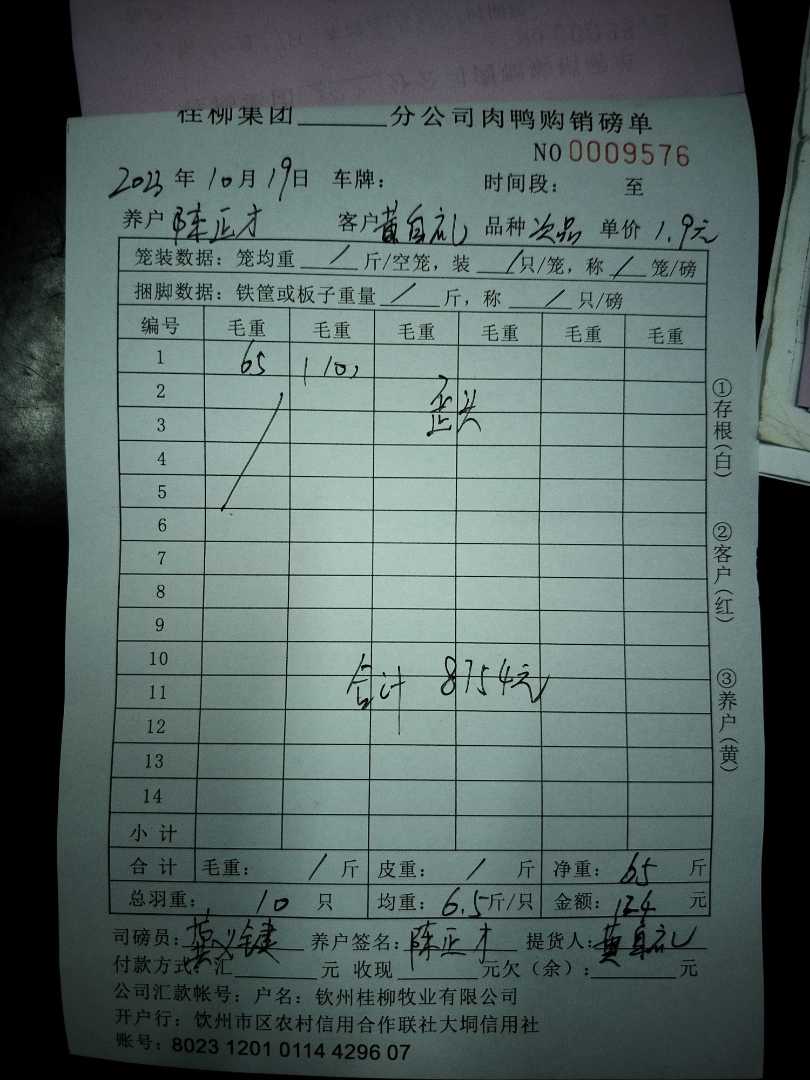 桂柳集团______分公司肉鸭购销磅单
NO 0009576
2023年10月19日 车牌： 时间段： 至
养户 陈正才 客户 黄自礼 品种 次品 单价 1.9元
笼装数据：笼均重 / 斤/空笼，装 / 只/笼，称 / 笼/磅
捆脚数据：铁筐或板子重量 / 斤，称 / 只/磅
编号 毛重 毛重 毛重 毛重 毛重 毛重
1 65 / 10
2 歪头
3
4
5
6
7
8
9
10
11 合计 8754元
12
13
14
小计
合计 毛重： / 斤 皮重： / 斤 净重：65 斤
总羽重： 10 只 均重：6.5斤/只 金额：124 元
司磅员：莫义键 养户签名：陈正才 提货人：黄自礼
付款方式：汇______元 收现______元欠（余）：______元
公司汇款帐号：户名：钦州桂柳牧业有限公司
开户行：钦州市区农村信用合作联社大垌信用社
账号：8023 1201 0114 4296 07
①存根（白）
②客户（红）
③养户（黄）